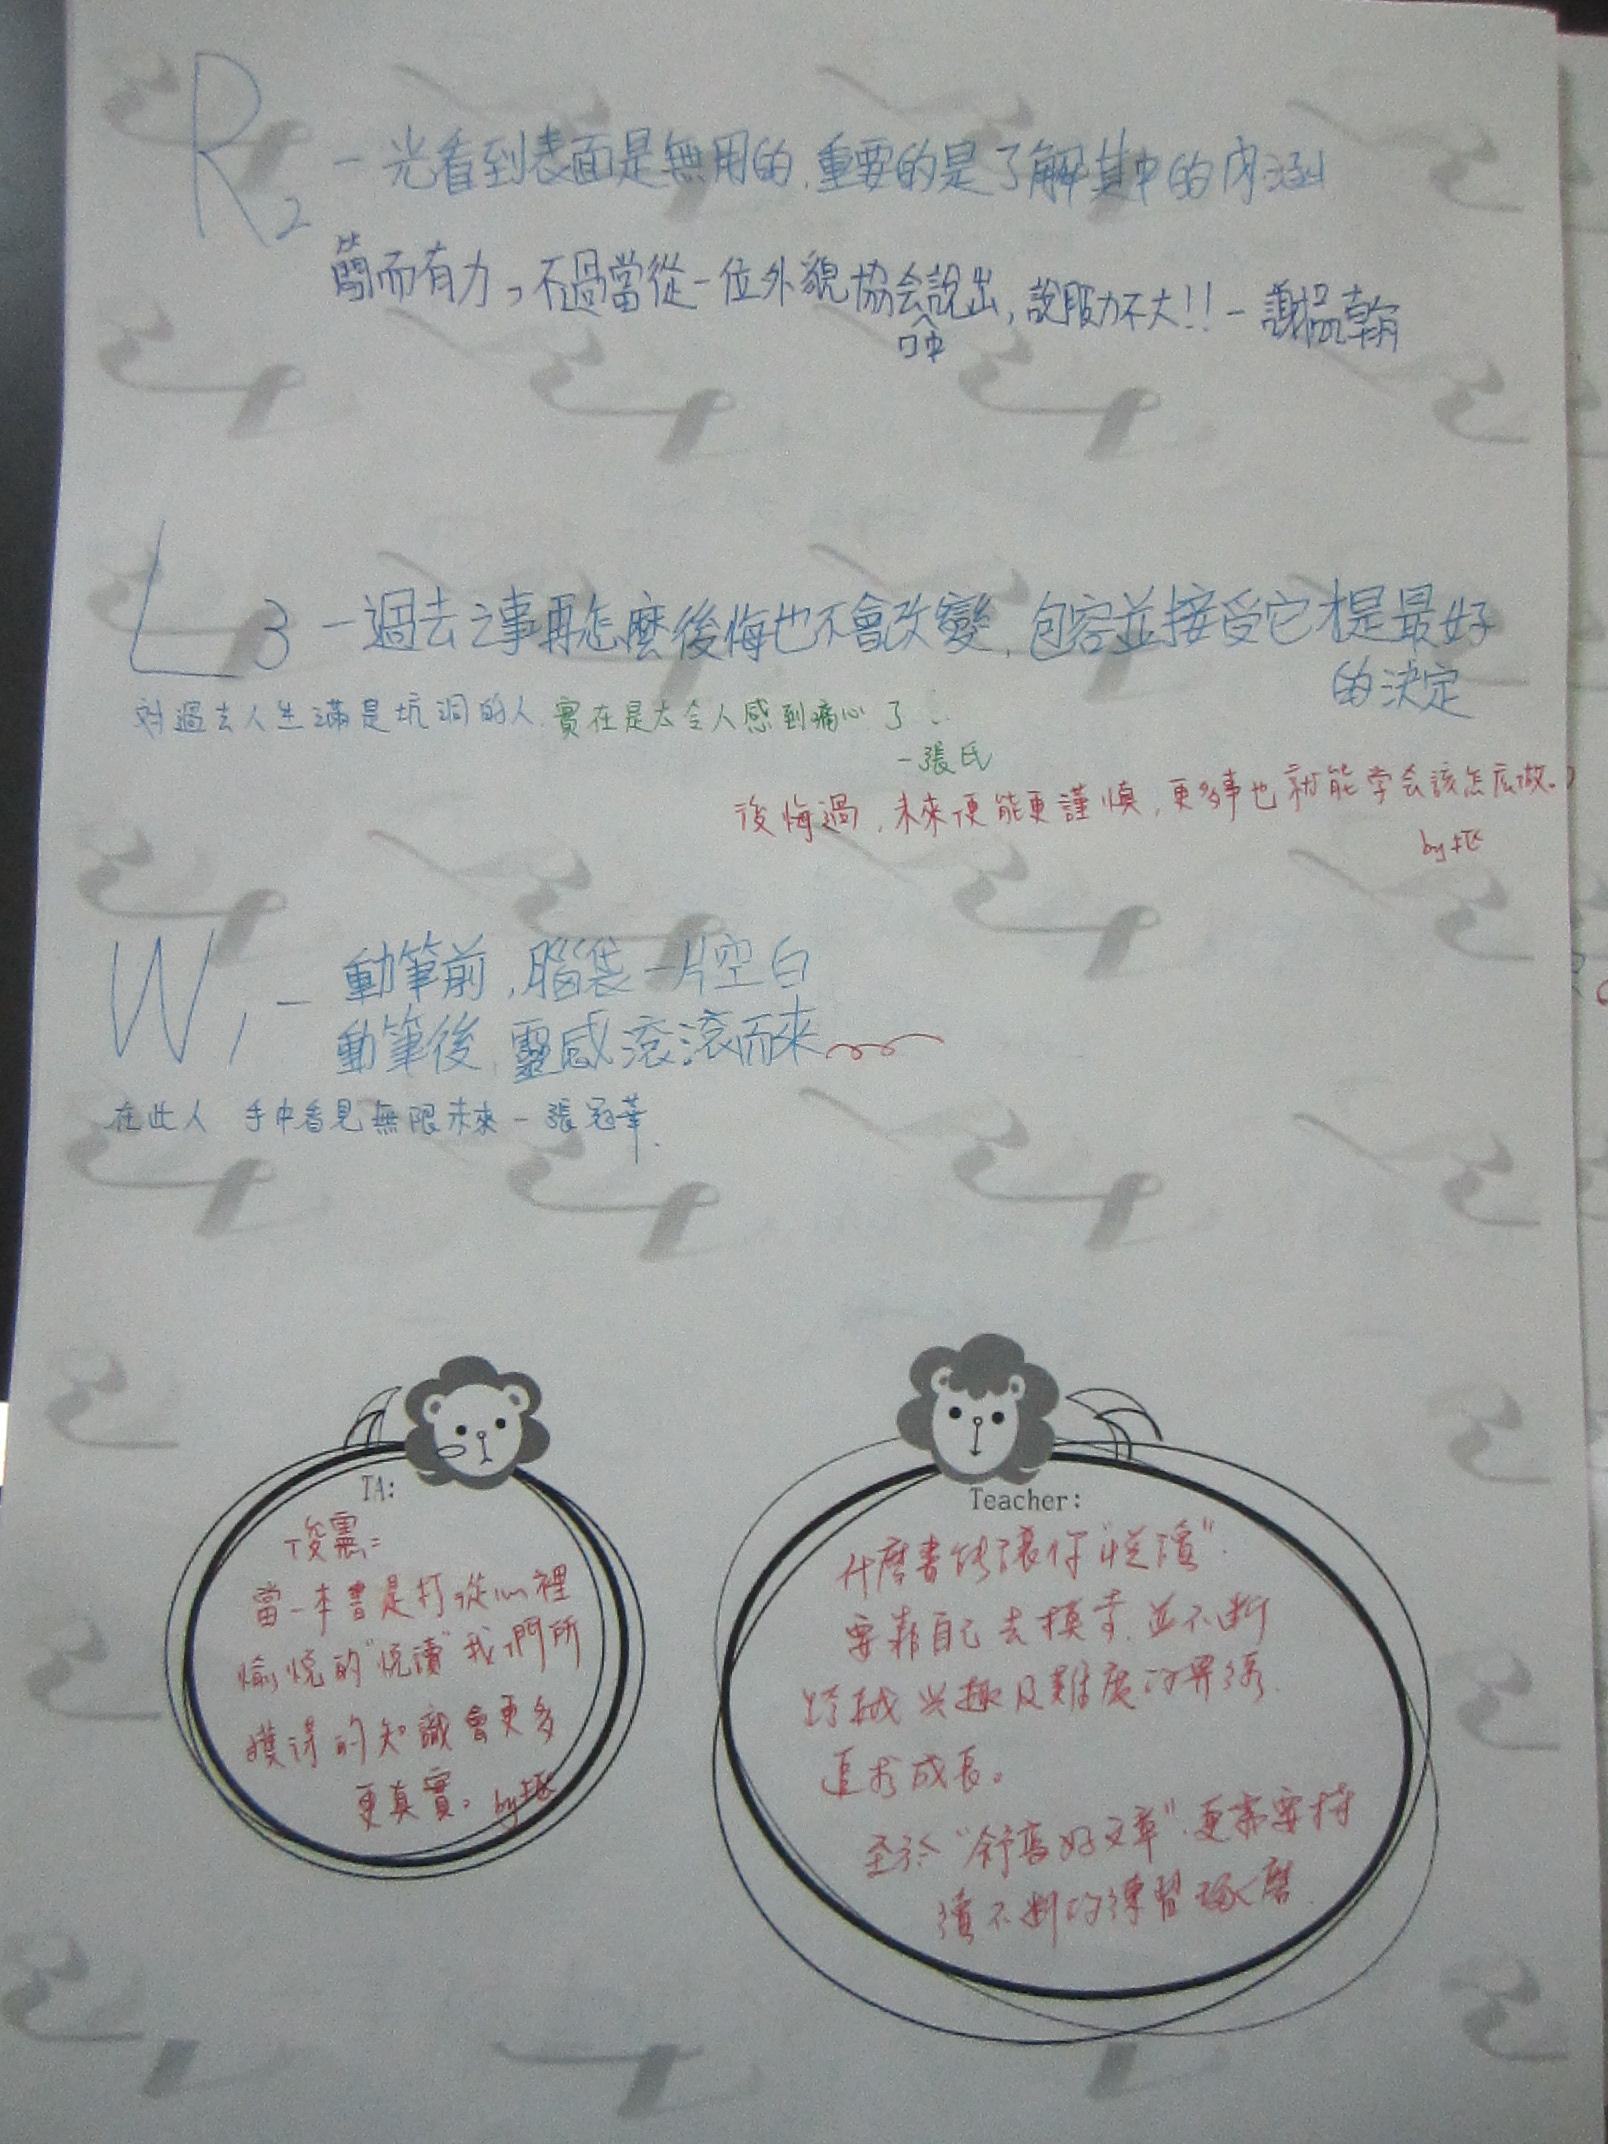 R2 - 光看到表面是無用的,重要的是了解其中的內涵
簡而有力,不過當從一位外貌協会說出,說服力不大!! - 謝
L3 - 過去之事再怎麼後悔也不會改變,包容並接受它才是最好
的決定
對過去人生滿是坑洞的人,實在是太令人感到痛心了...
- 張氏
後悔過,未來便能更謹慎,更多事也就能学会該怎麼做。
by
W1 - 動筆前,腦袋一片空白
動筆後,靈感滾滾而來
在此人 手中看見無限未來 - 張冠華
TA:
俊靂:
當一本書是打從心裡
愉悅的"悅讀"我們所
獲得的知識會更多
更真實。 by
Teacher:
什麼書能讓你"悅讀".
要靠自己去摸索,並不斷
跨越興趣及難度的界線.
追求成長。
至於"舒寫好文章",更需要持
續不斷的練習琢磨.